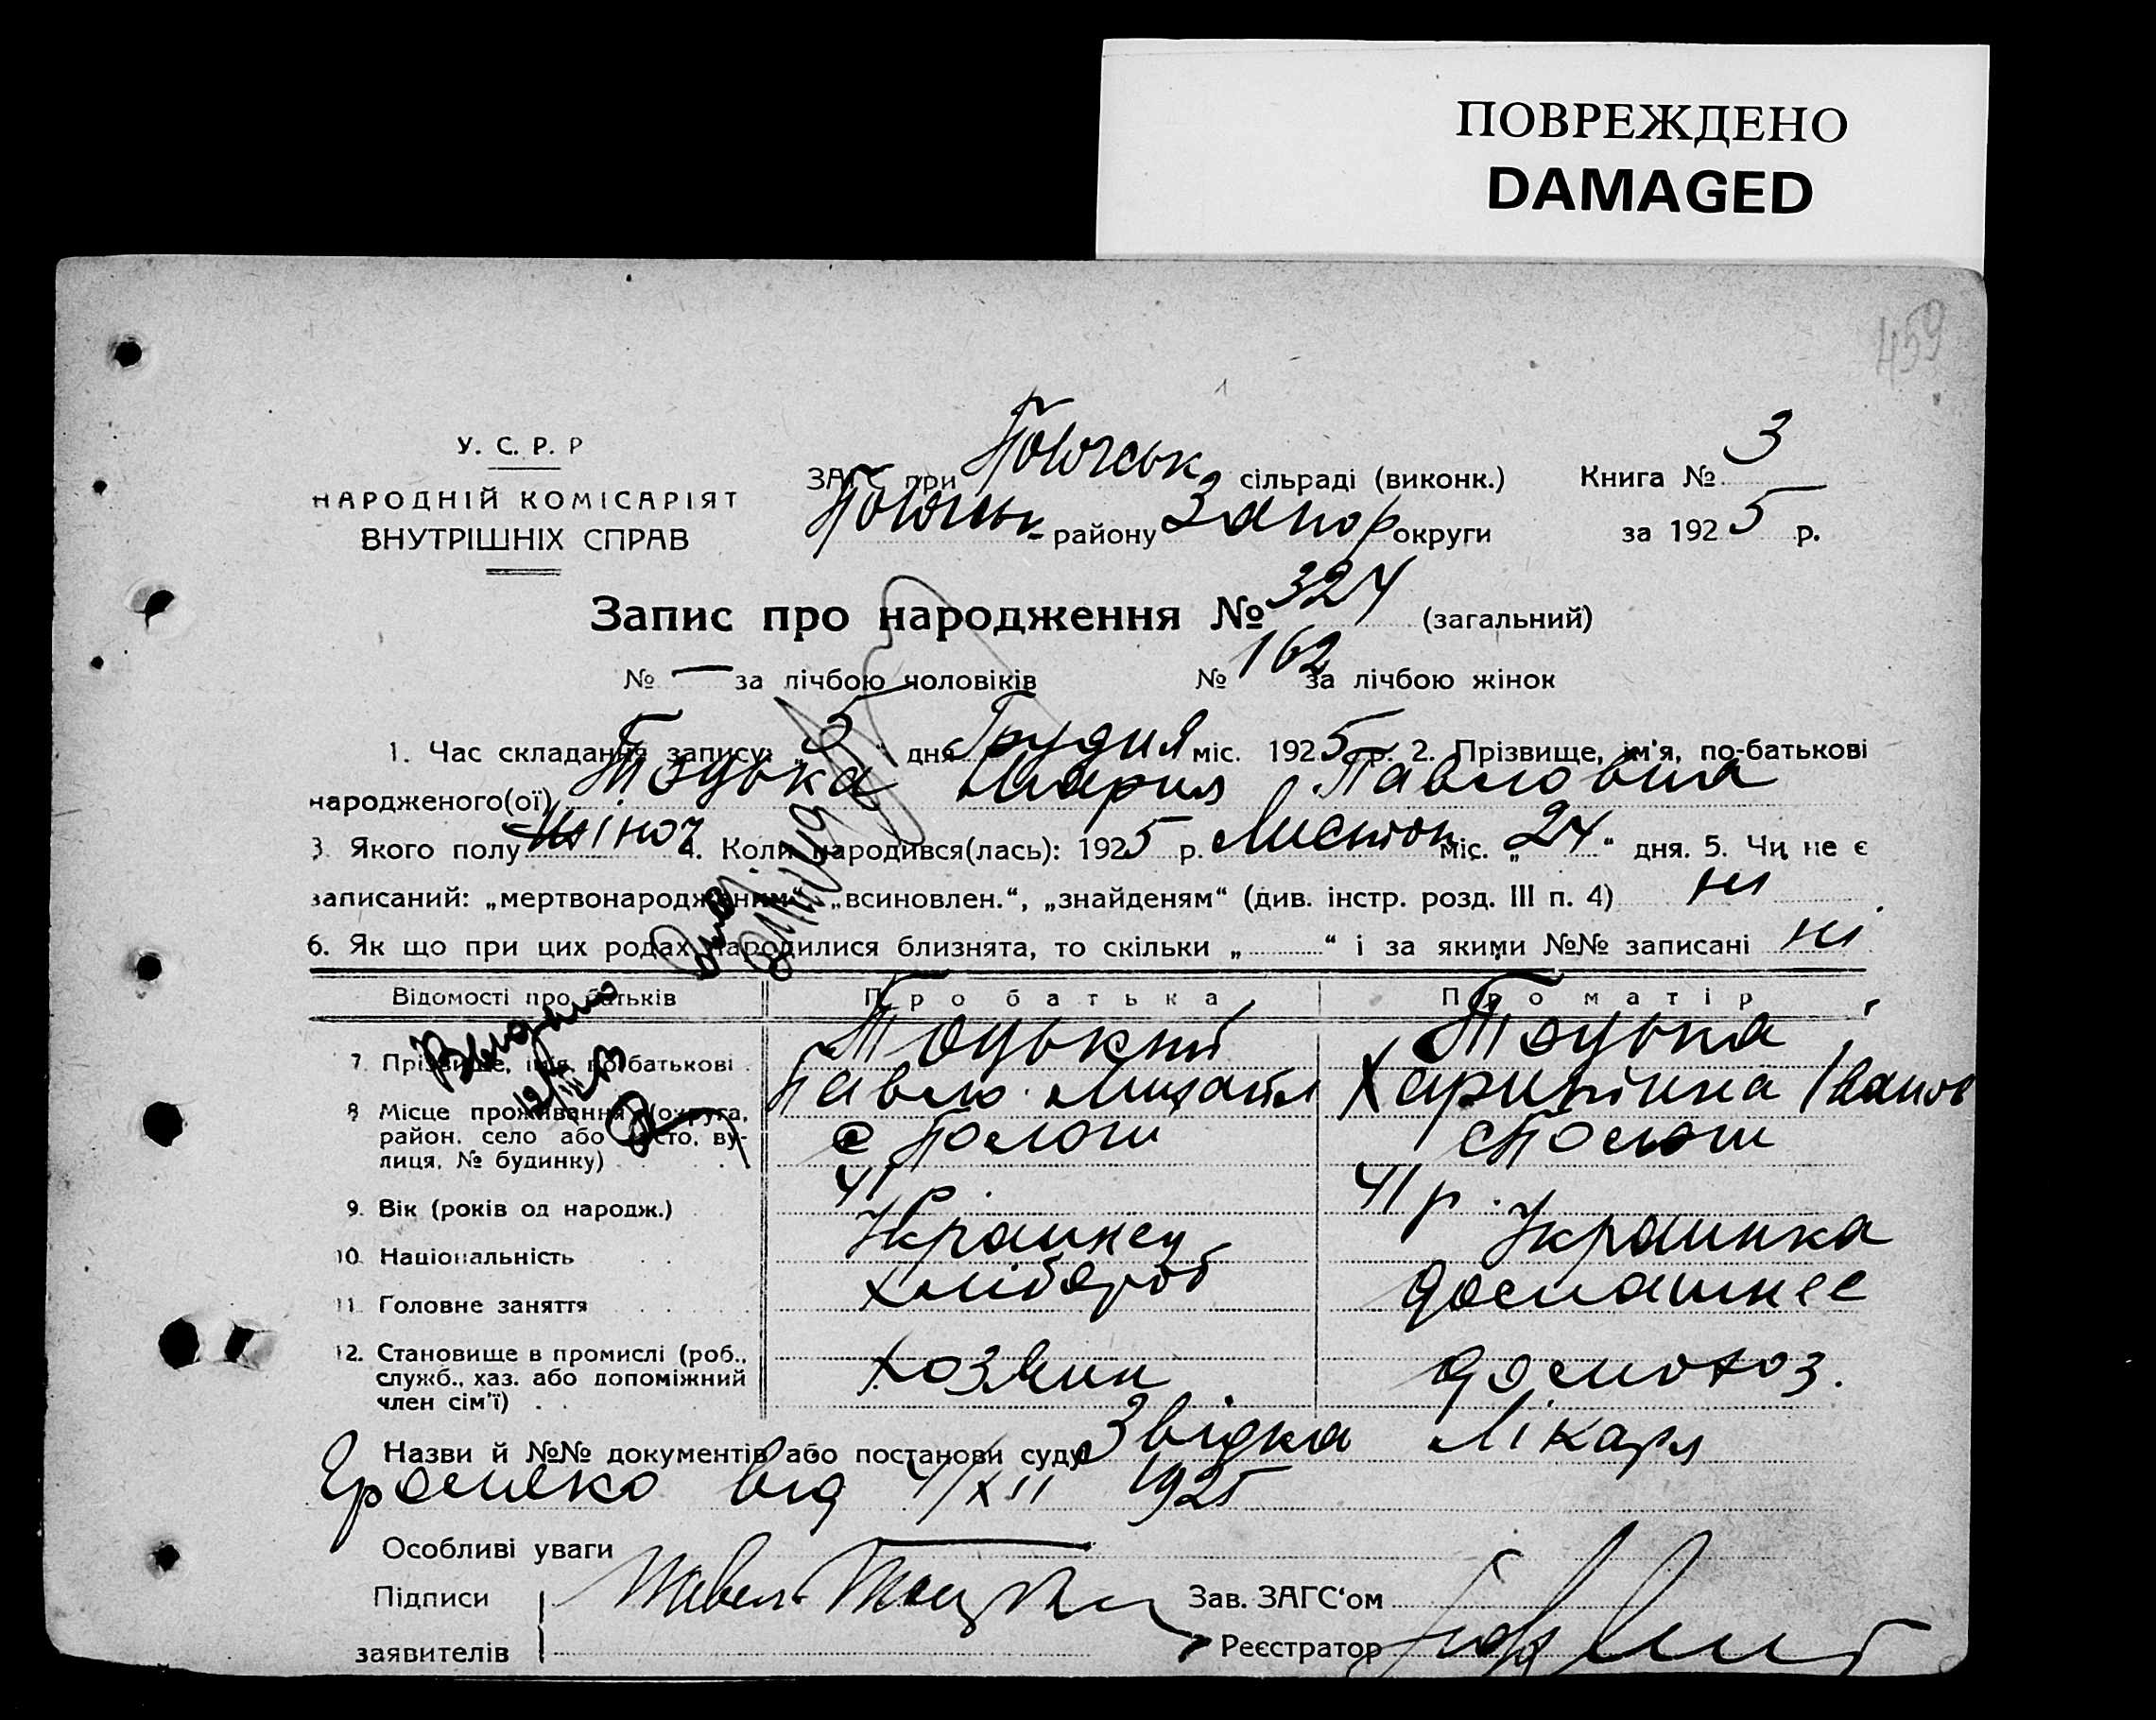 ПОВРЕЖДЕНО
DAMAGED
459
У. С. Р. Р
НАРОДНІЙ КОМІСАРІЯТ
ВНУТРІШНІХ СПРАВ
ЗАГС при сільраді (виконк.)
району Запор округи
Книга № 3
за 1925 р.
Запис про народження № 324 (загальний)
№ — за лічбою чоловіків № 162 за лічбою жінок
1. Час складання запису: „5“ дня Грудня міс. 1925 р. 2. Прізвище, ім'я, по-батькові
народженого(ої) Тоцька Мария Павловна
3. Якого полу жіноч 4. Коли народився(лась): 1925 р. Листоп міс. „24“ дня. 5. Чи не є
записаний: „мертвонародженим“, „всиновлен.“, „знайденям“ (див. інстр. розд. III п. 4) ні
6. Як що при цих родах народилися близнята, то скільки „ “ і за якими №№ записані ні
Відомості про батьків Про батька Про матір
7. Прізвище, ім'я, по-батькові Тоцький Тоцька
Павло Михайл Харитінна Іванов
8. Місце проживання (округа, район, село або місто, вулиця, № будинку) с Пологи с Пологи
9. Вік (років од народж.) 41 41 р.
10. Національність Украинец Украинка
11. Головне заняття хлібороб домашнее
12. Становище в промислі (роб., служб., хаз. або допоміжний член сім'ї) хозяин домохоз.
Назви й №№ документів або постанови суду Звідка лікаря
Громеко від 4/XII 1925
Особливі уваги —
Підписи
заявителів
Павел Тоцкий
Зав. ЗАГС'ом
Реєстратор
Выдано